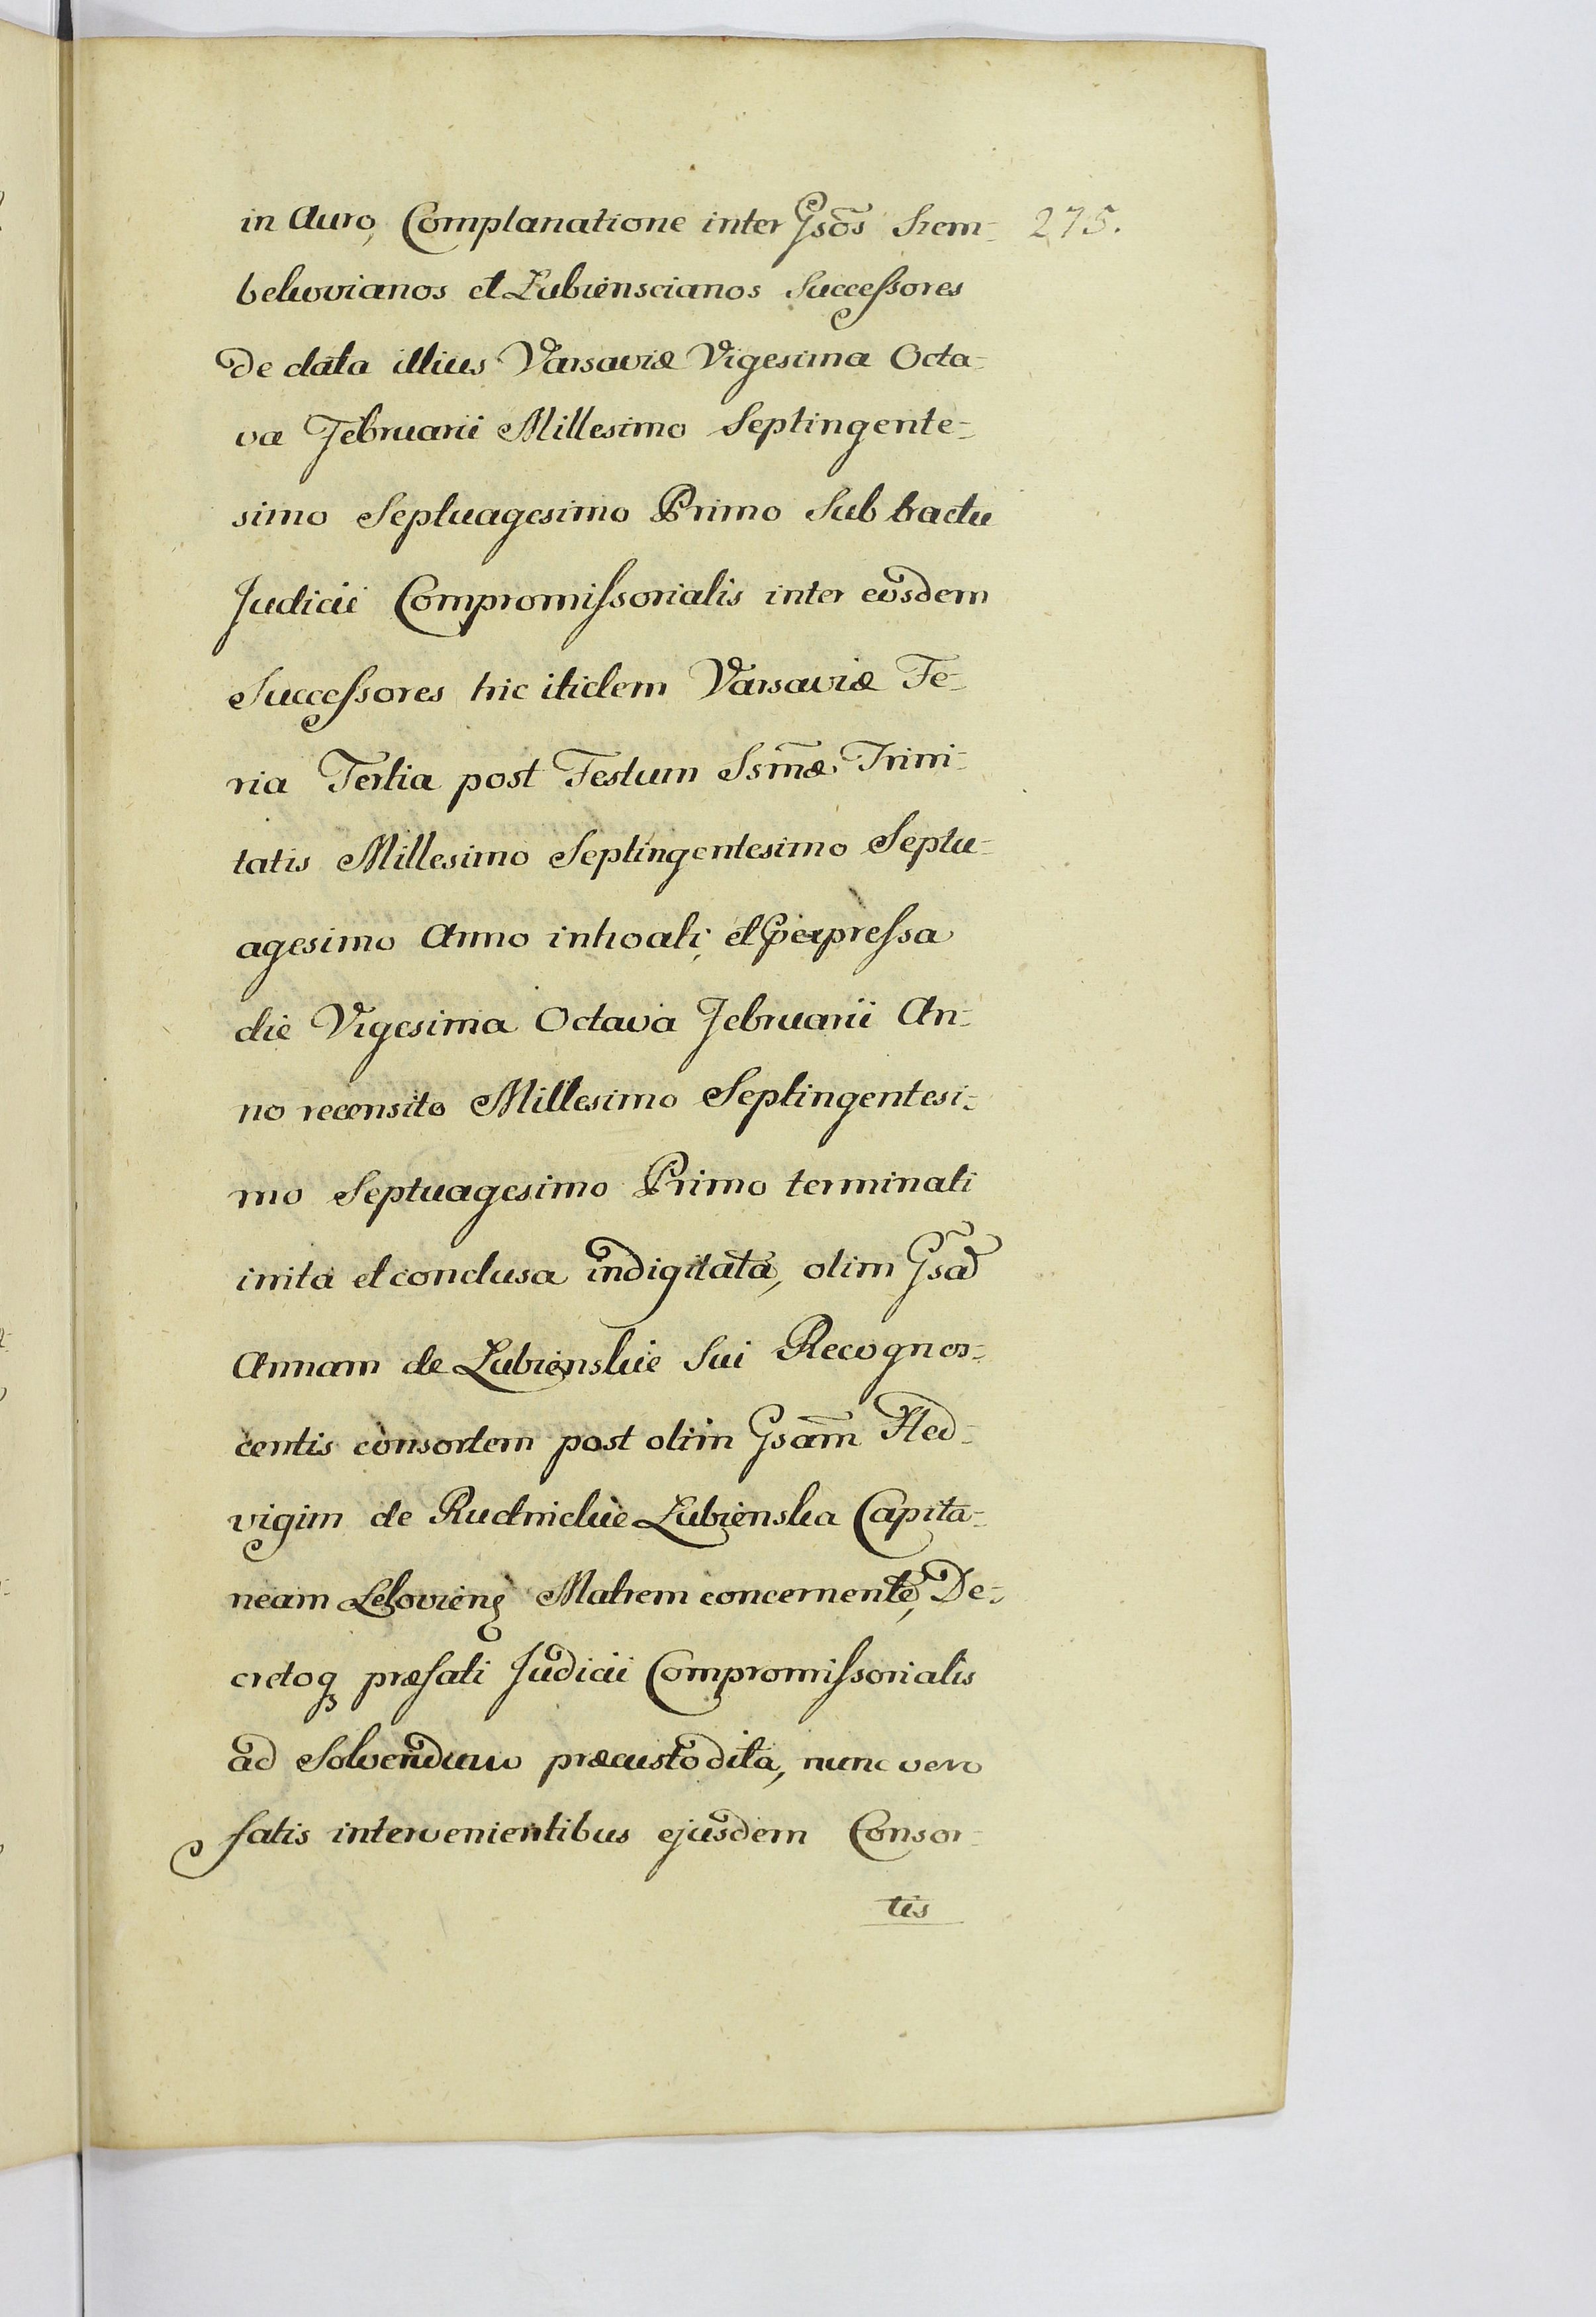 in Auro, Complanatione inter Gsõs Szem- 275.
bekovianos et Łubienscianos Successores
De data illius Varsaviæ Vigesima Octa-
va Februarii Millesimo Septingente-
simo Septuagesimo Primo Sub tractu
Judicii Compromissorialis inter eosdem
Successores hic itidem Varsaviæ Fe-
ria Tertia post Festum Ssm̃æ Trini-
tatis Millesimo Septingentesimo Septu-
agesimo Anno inhoati, et expressa
die Vigesima Octava Februarii An-
no recensito Millesimo Septingentesi-
mo Septuagesimo Primo terminati
inita et conclusa indigitata, olim Gsã
Annam de Łubienskie Sui Recognos-
centis consortem post olim Gsam̃ Hed-
vigim de Rudnickie Łubienska Capita-
neam Leloviens Matrem concernente, De-
cretoq præfati Judicii Compromissorialis
ad Solvendum præcustodita, nunc vero
fatis intervenientibus ejusdem Consor-
tis